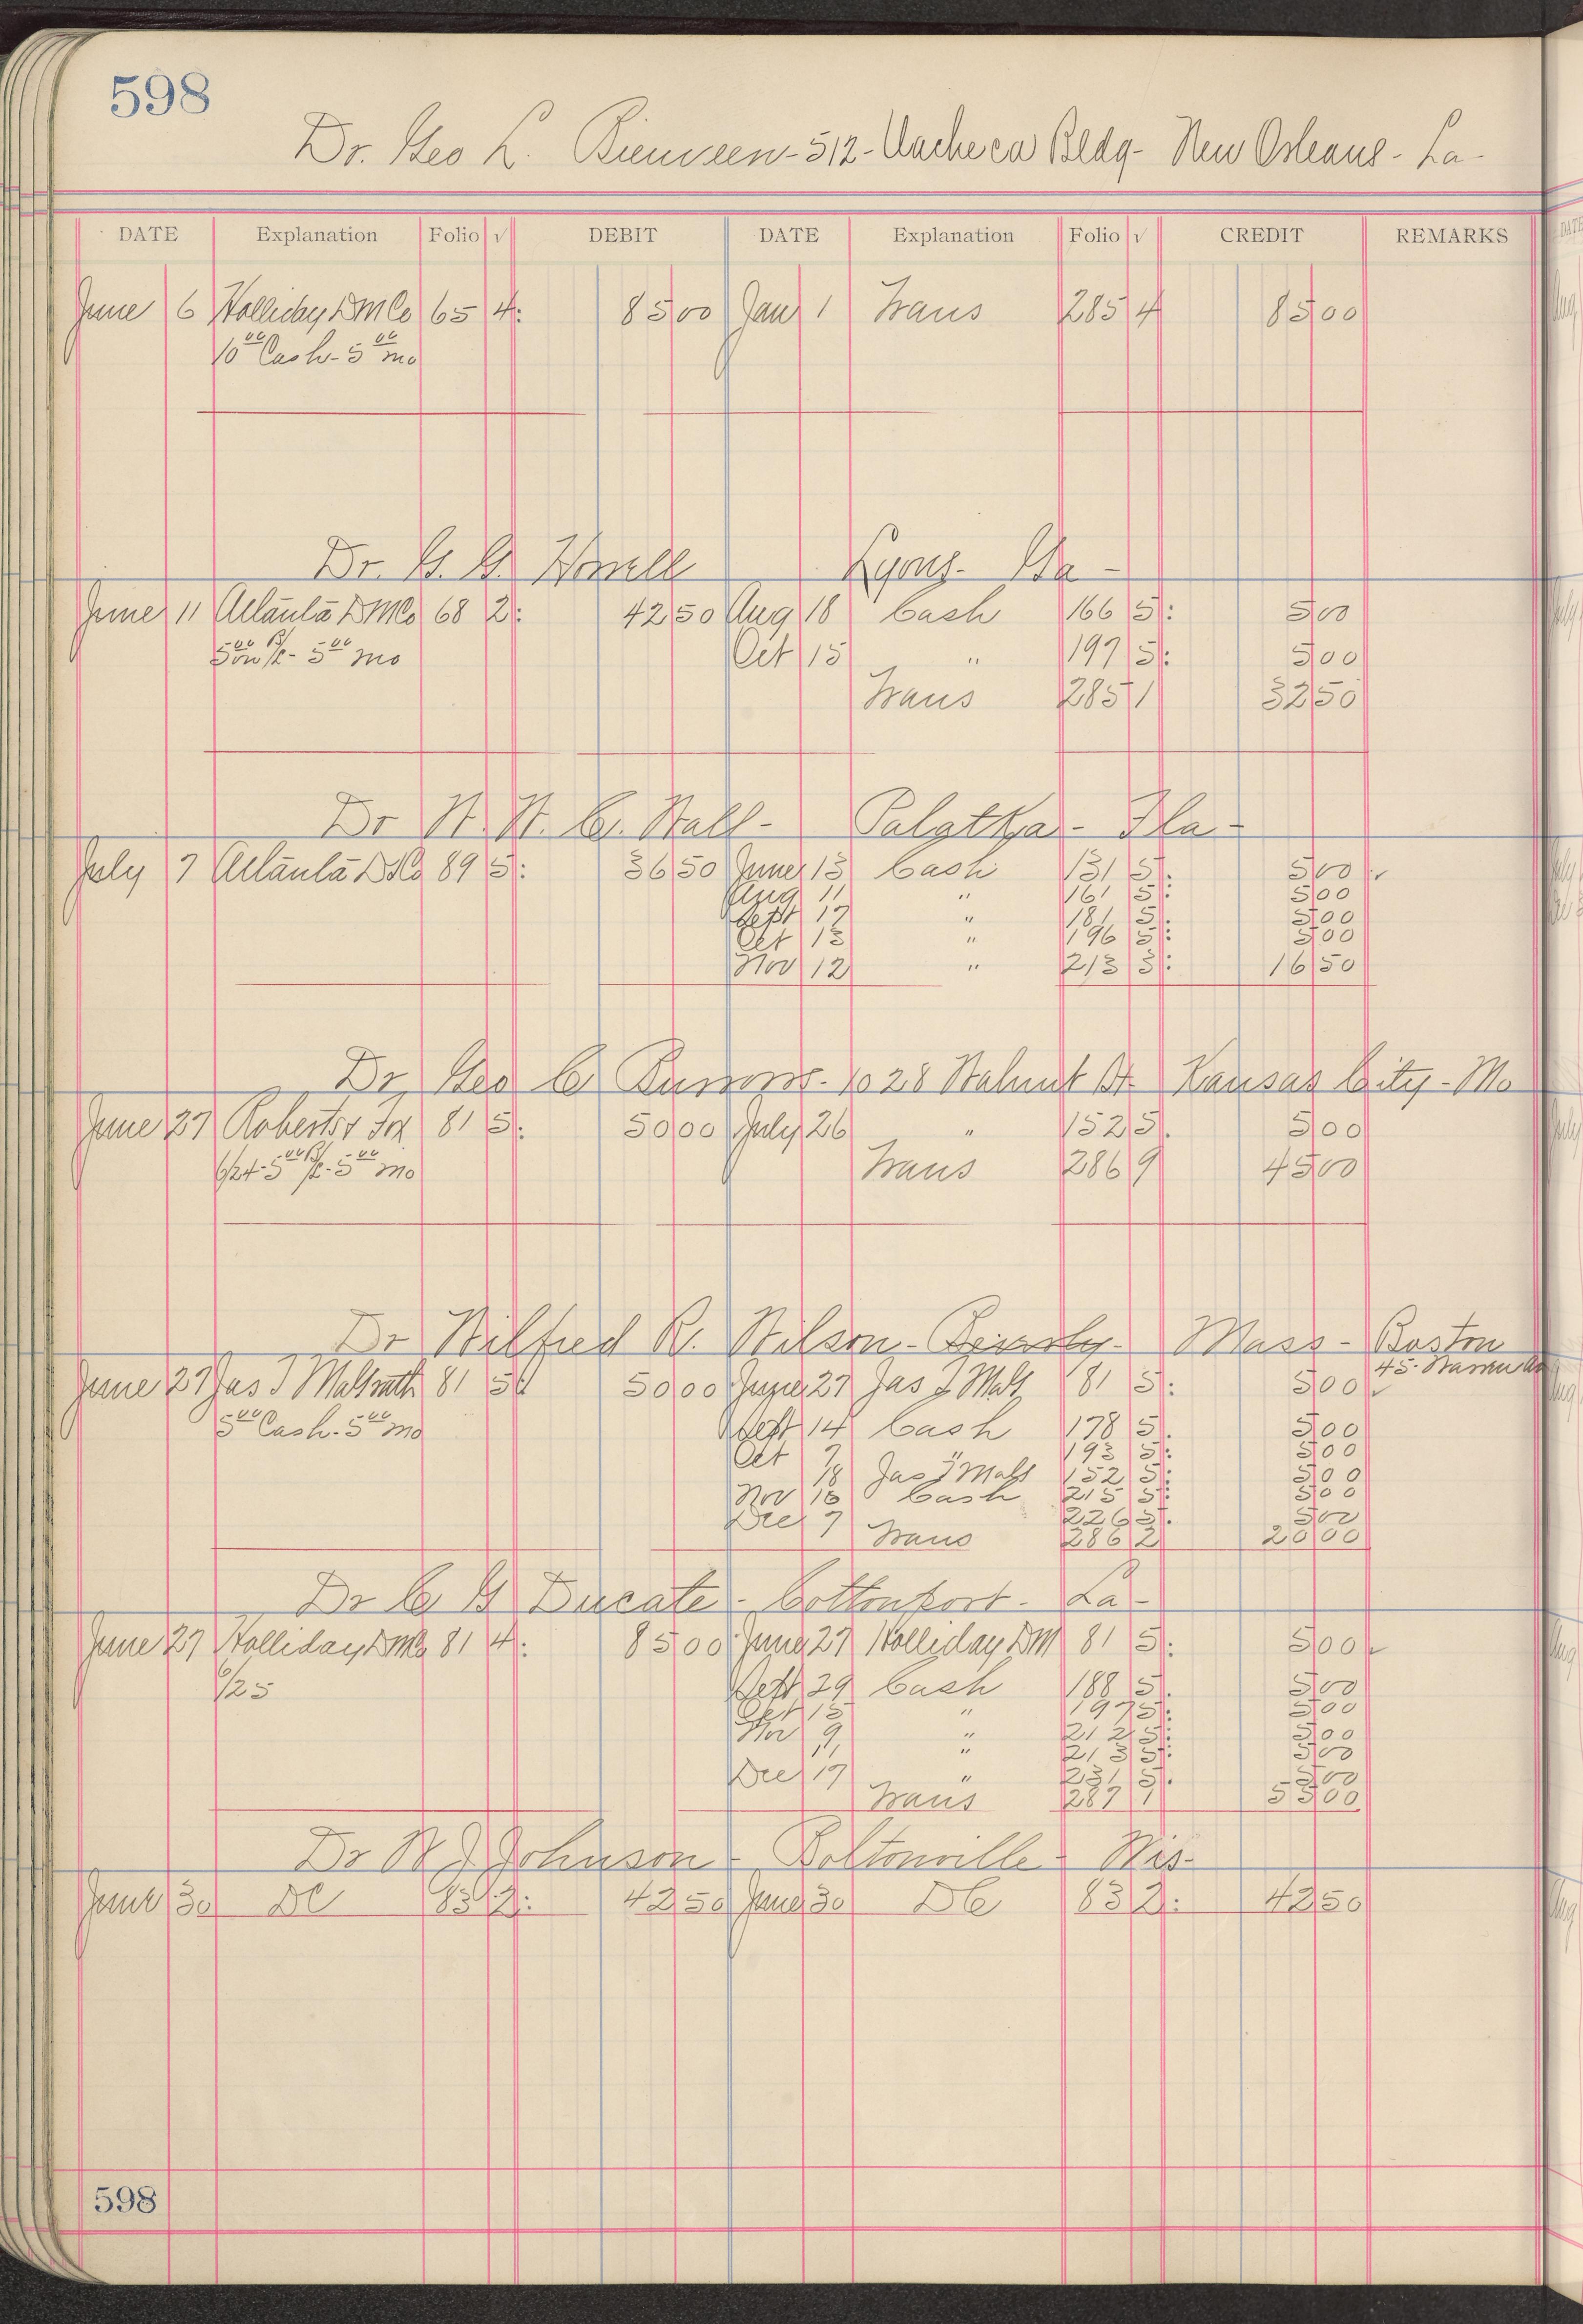 598
Dr. Geo L. - 512 - Macheca Bldg - New Orleans - La -
DATE Explanation Folio √ DEBIT DATE Explanation Folio √ CREDIT REMARKS
June 6 Holliday D M Co 65 4: 85 00 Jan 1 Trans 285 4 85 00
10 00 Cash - 5 00 mo
Dr. G. G. Lyons - Ga -
June 11 Atlanta D M Co 68 2: 42 50 Aug 18 Cash 166 5: 5 00
5 00 - 5 00 mo Oct 15 " 197 5: 5 00
Trans 285 1 32 50
Dr W. W. C. Hall - Palatka - Fla -
July 7 Atlanta D M Co 89 5: 36 50 June 13 Cash 131 5: 5 00
Aug 11 " 161 5: 5 00
Sept 17 " 181 5: 5 00
Oct 13 " 196 5: 5 00
Nov 12 " 213 3: 16 50
Dr Geo C - 1028 Walnut St Kansas City - Mo
June 27 Roberts 81 5: 50 00 July 26 " 152 5: 5 00
6/24 - 5 00 - 5 00 mo Trans 286 9 45 00
Dr Wilfred R. Wilson - Mass - Boston
45 - Warren
June 27 Jas J 81 5: 50 00 June 27 Jas J 81 5: 5 00
5 00 Cash - 5 00 mo Sept 14 Cash 178 5: 5 00
Oct 7 " 193 5: 5 00
18 Jas J 152 5: 5 00
Nov 16 Cash 215 5: 5 00
Dec 7 226 5: 5 00
Trans 286 2 20 00
Dr C G Ducate - Cottonport - La -
June 27 Holliday D M Co 81 4: 85 00 June 27 Holliday D M 81 5: 5 00
6/25 Sept 29 Cash 188 5: 5 00
Oct 15 " 197 5: 5 00
Nov 9 " 212 5: 5 00
11 " 213 5: 5 00
Dec 17 " 231 5: 5 00
Trans 287 1 55 00
Dr W J Johnson - Boltonville - Wis -
June 30 DC 83 2: 42 50 June 30 DC 83 2: 42 50
598